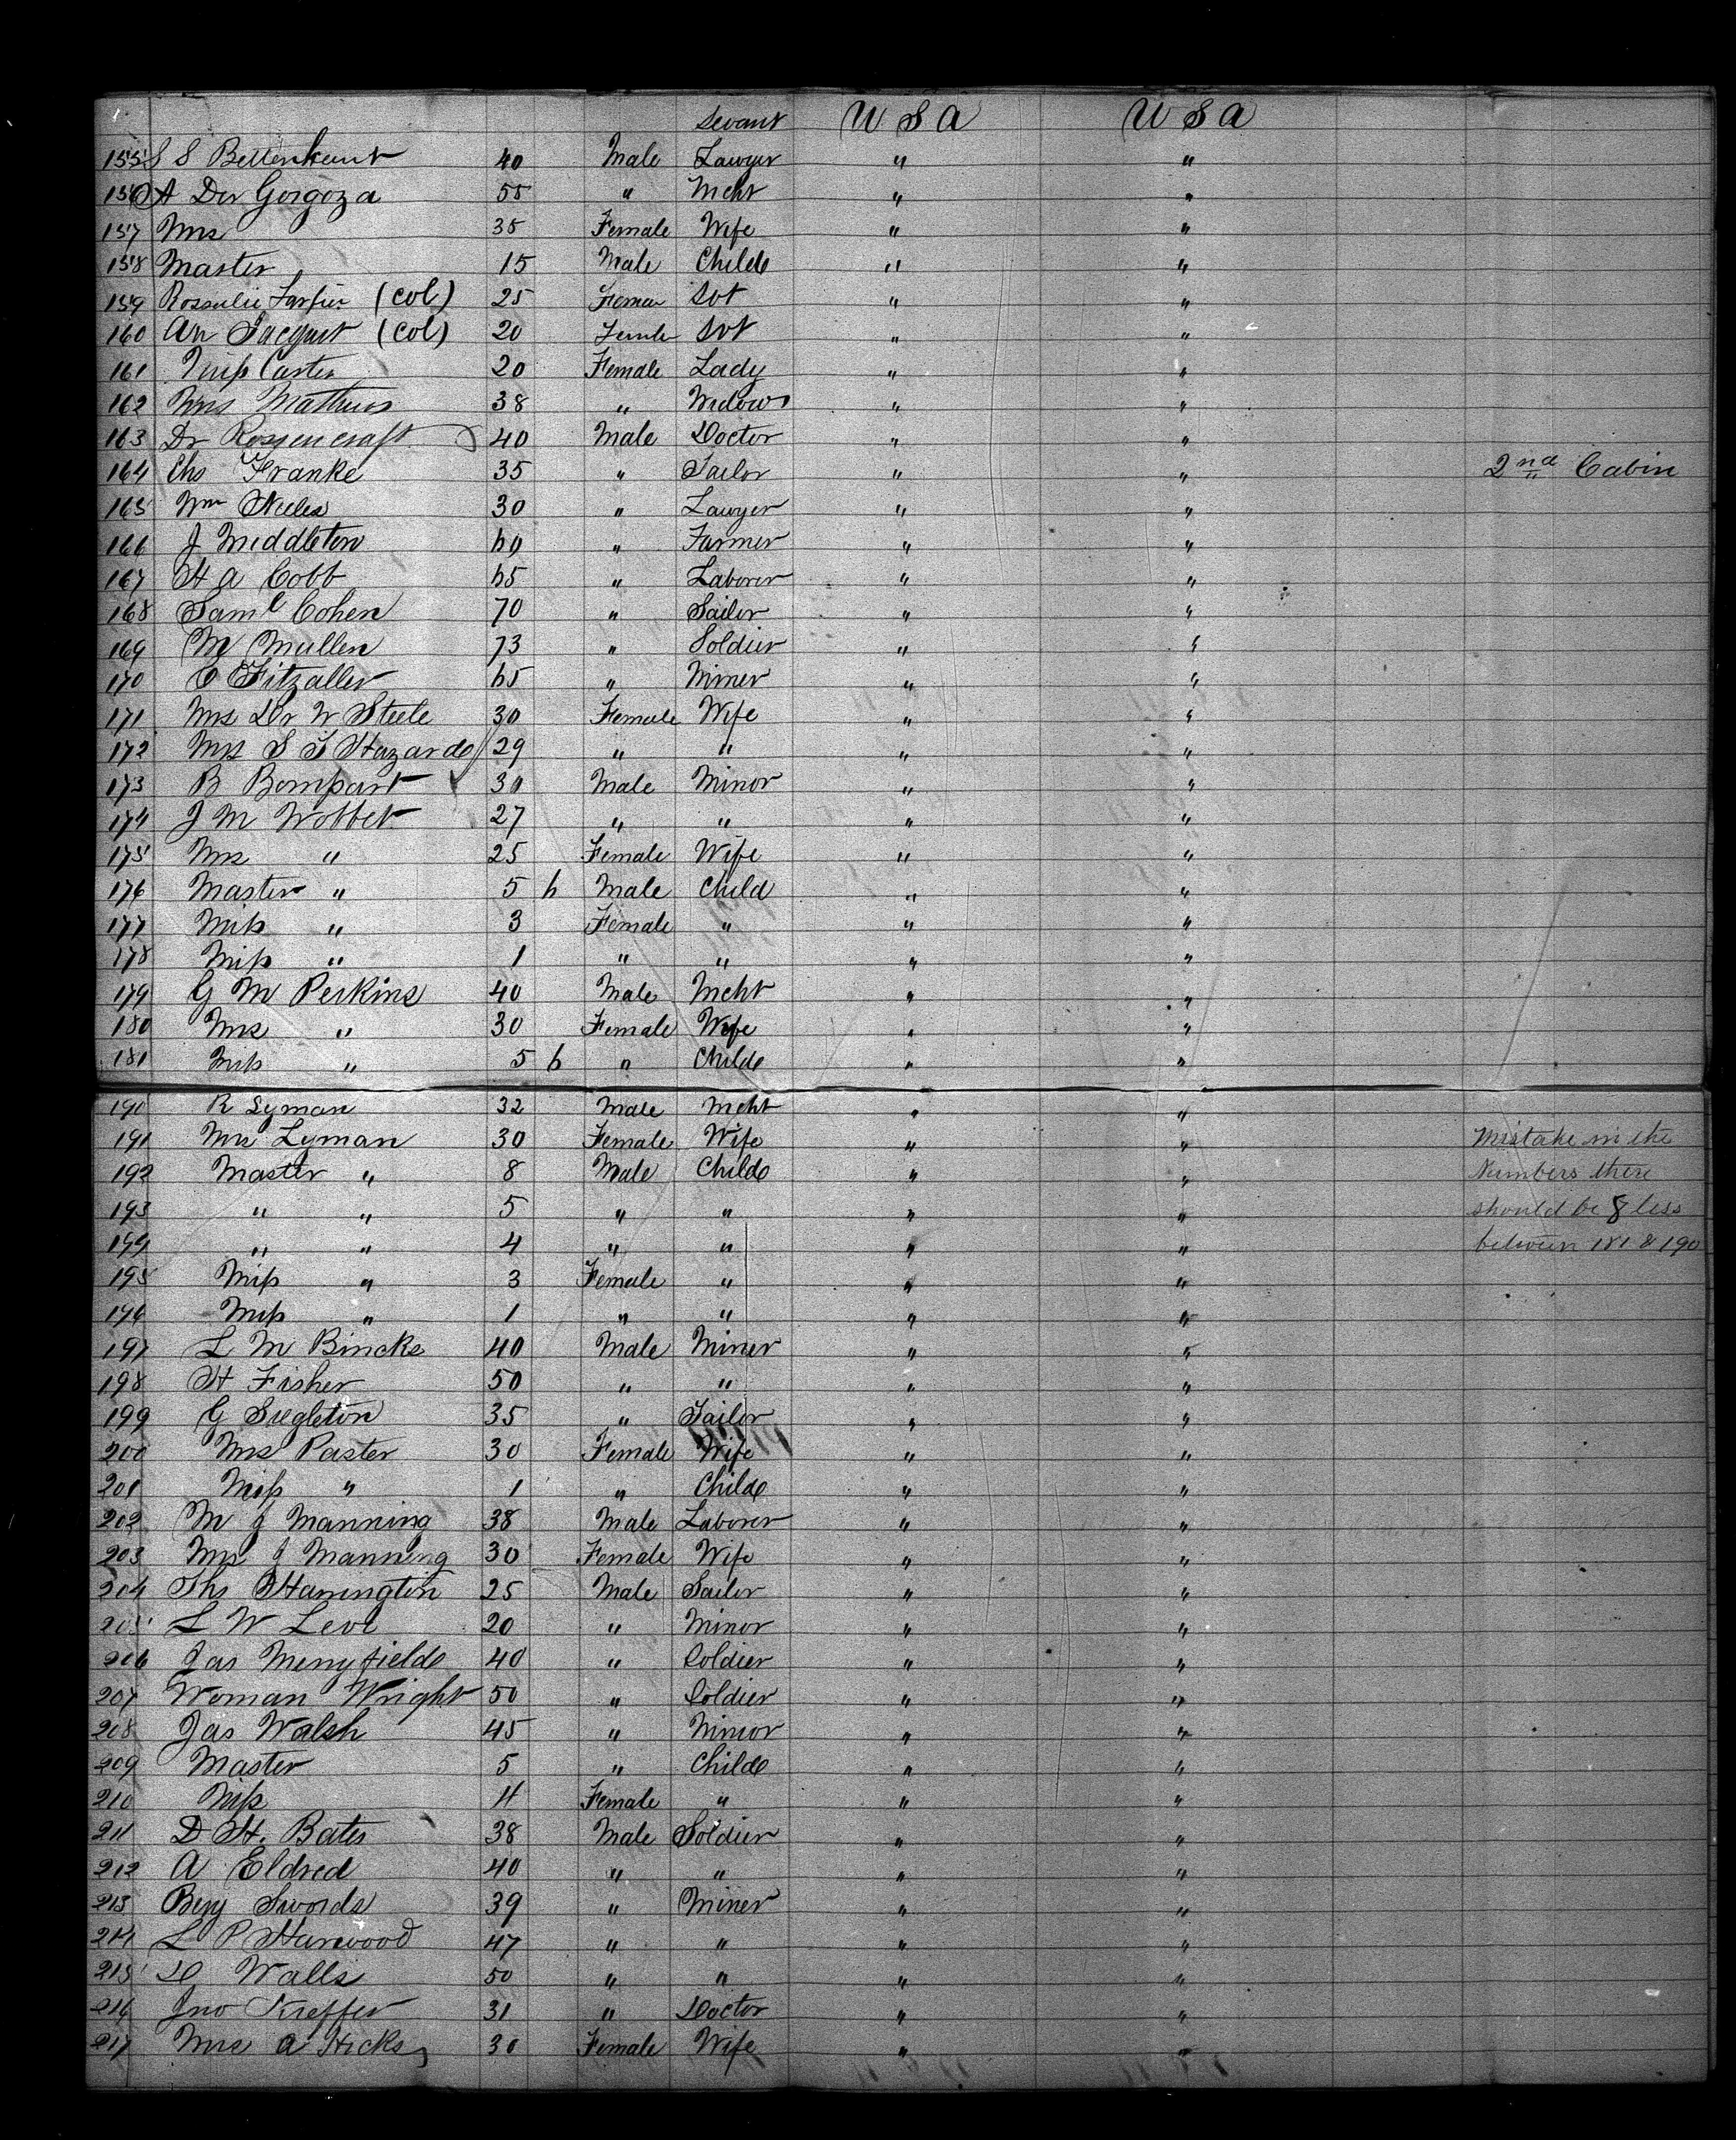 Sevant U S A U S A
155 S S Bettenkant 40 Male Lawyer " "
156 A Der Gorgoza 55 " Mcht " "
157 Mrs 35 Female Wife " "
158 Master 15 Male Child " "
159 (col) 25 Svt " "
160 An Jacquet (col) 20 Svt " "
161 Miss Carter 20 Female Lady " "
162 Mrs Mathews 38 " Widow " "
163 Dr Rosencraft 40 Male Doctor " "
164 Chs Franke 35 " Tailor " " 2nd Cabin
165 Wm 30 " Lawyer " "
166 J Middleton 60 " Farmer " "
167 H A Cobb 65 " Laborer " "
168 Saml Cohen 70 " Sailor " "
169 M Mullen 73 " Soldier " "
170 C Fitzaller 65 " Miner " "
171 Mrs Dr W Steele 30 Female Wife " "
172 Mrs S T Hazard 29 " " " "
173 B Bompart 30 Male Minor " "
174 J M Wobbet 27 " " " "
175 Mrs " 25 Female Wife " "
176 Master " 5 6 Male Child " "
177 Miss " 3 Female " " "
178 Miss " 1 " " " "
179 G M Perkins 40 Male Mcht " "
180 Mrs " 30 Female Wife " "
181 Miss " 5 6 " Child " "
190 R Lyman 32 Male Mcht " "
191 Mrs Lyman 30 Female Wife " " Mistake in the
192 Master " 8 Male Child " " Numbers there
193 " " 5 " " " " should be 8 less
194 " " 4 " " " " between 181 & 190
195 Miss " 3 Female " " "
196 Miss " 1 " " " "
197 L M Bincks 40 Male Miner " "
198 H Fisher 50 " " " "
199 G Segleton 35 " Tailor " "
200 Mrs Paster 30 Female Wife " "
201 Miss " 1 " Child " "
202 M J Manning 38 Male Laborer " "
203 Mrs J Manning 30 Female Wife " "
204 Ths Harrington 25 Male Sailor " "
205 L W Leve 20 " Minor " "
206 Jas Merryfield 40 " Soldier " "
207 Woman Wright 50 " Soldier " "
208 Jas Walsh 45 " Minor " "
209 Master 5 " Child " "
210 Miss 4 Female " " "
211 D H. Bates 38 Male Soldier " "
212 A Eldred 40 " " " "
213 Benj Swords 39 " Miner " "
214 L P Harwood 47 " " " "
215 Walls 50 " " " "
216 Jno Kreffer 31 " Doctor " "
217 Mrs A Hicks 30 Female Wife " "